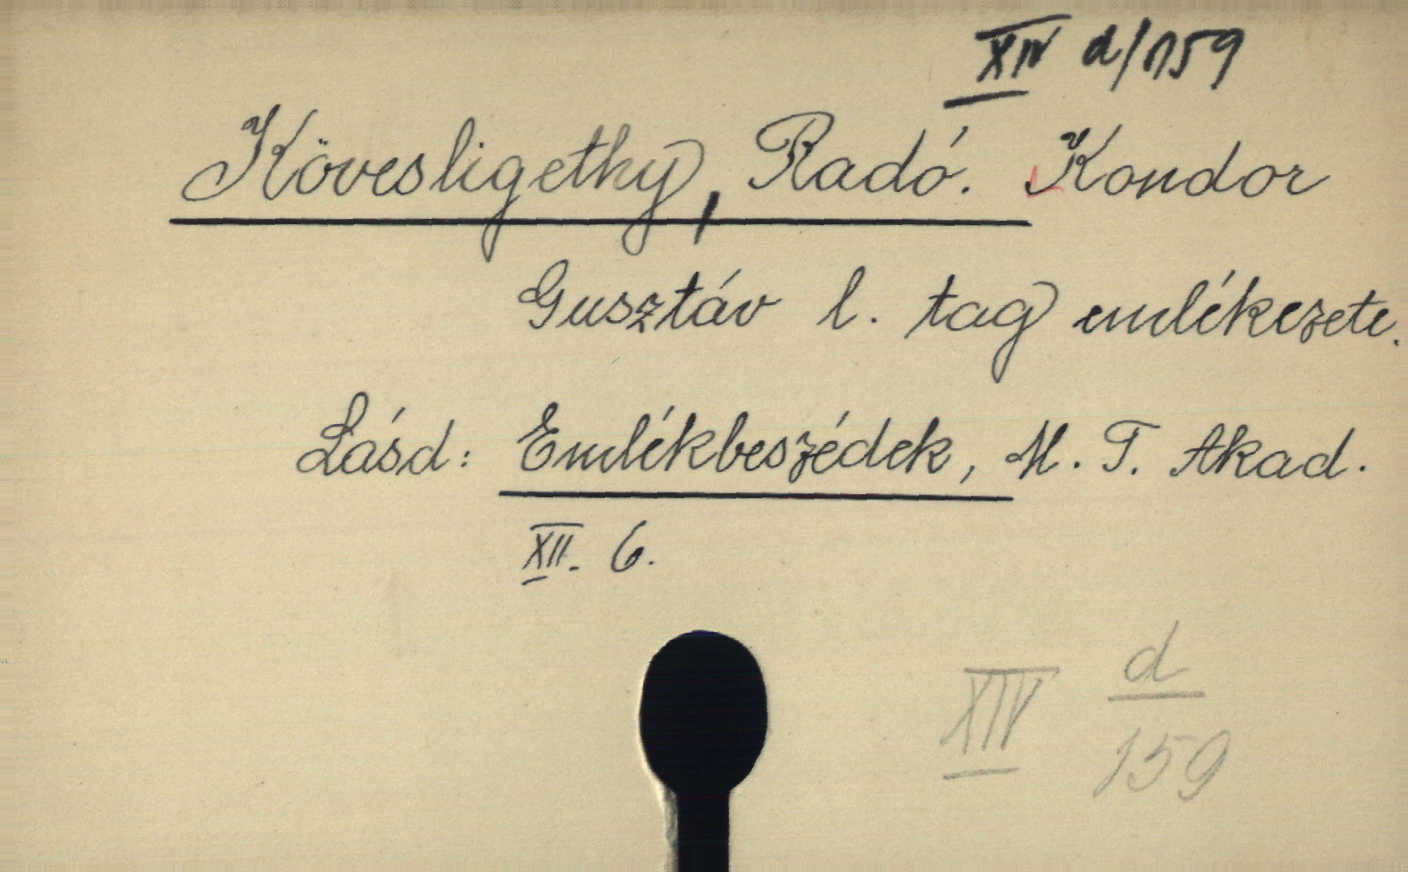 XIV d/159
Kövesligethy, Radó. Kondor
Gusztáv l. tag emlékezete.
Lásd: Emlékbeszédek, M. T. Akad.
XII. 6.
XIV d/159